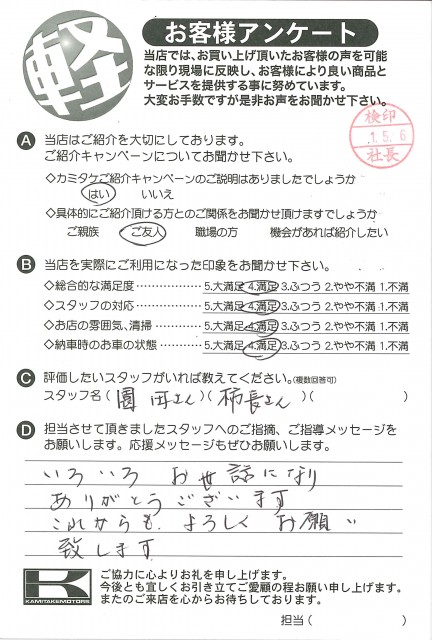 軽
お客様アンケート
当店では、お買い上げ頂いたお客様の声を可能
な限り現場に反映し、お客様により良い商品と
サービスを提供する事に努めています。
大変お手数ですが是非お声をお聞かせ下さい。
検印
1.5.6
社長
A 当店はご紹介を大切にしております。
ご紹介キャンペーンについてお聞かせ下さい。
◇カミタケご紹介キャンペーンのご説明はありましたでしょうか
はい いいえ
◇具体的にご紹介頂ける方とのご関係をお聞かせ頂けますでしょうか
ご親族 ご友人 職場の方 機会があれば紹介したい
B 当店を実際にご利用になった印象をお聞かせ下さい。
◇総合的な満足度 ‥‥‥‥‥‥ 5.大満足 4.満足 3.ふつう 2.やや不満 1.不満
◇スタッフの対応 ‥‥‥‥‥‥ 5.大満足 4.満足 3.ふつう 2.やや不満 1.不満
◇お店の雰囲気、清掃 ‥‥‥‥ 5.大満足 4.満足 3.ふつう 2.やや不満 1.不満
◇納車時のお車の状態 ‥‥‥‥ 5.大満足 4.満足 3.ふつう 2.やや不満 1.不満
C 評価したいスタッフがいれば教えてください。(複数回答可)
スタッフ名 ( 園田さん )( 柿長さん )( )
D 担当させて頂きましたスタッフへのご指摘、ご指導メッセージを
お願いします。応援メッセージもぜひお願いします。
いろいろ お世話になり
ありがとうございます
これからも よろしく お願い
致します
K
KAMITAKEMOTORS
ご協力に心よりお礼を申し上げます。
今後とも宜しくお引き立てご愛顧の程お願い申し上げます。
またのご来店を心からお待ちしております。
担当 ( )